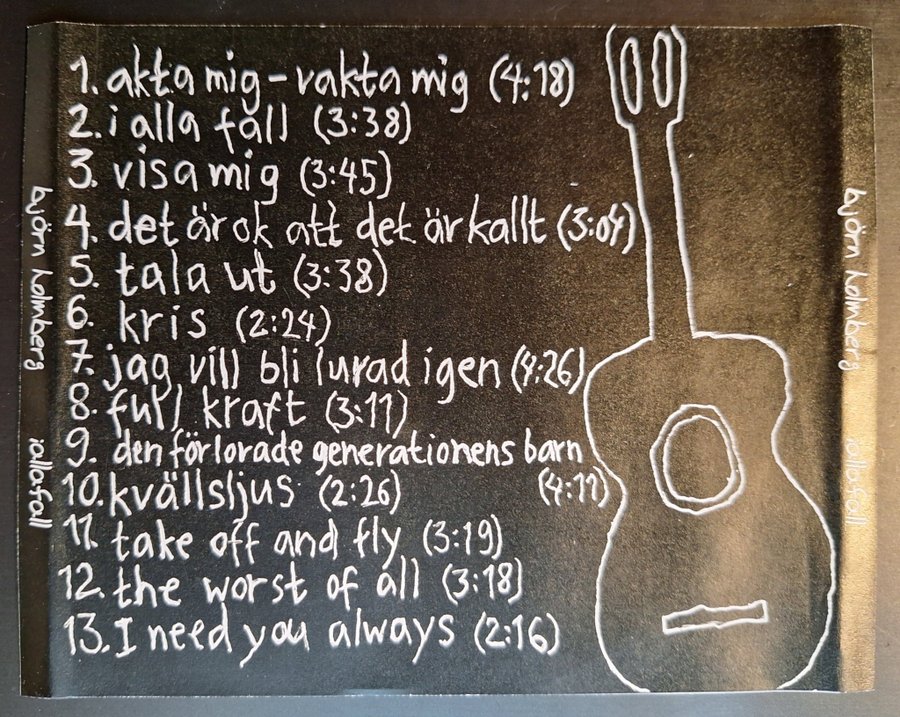 1. akta mig - vakta mig (4:18)
2. i alla fall (3:38)
3. visa mig (3:45)
4. det är ok att det är kallt (3:04)
5. tala ut (3:38)
6. kris (2:24)
7. jag vill bli lurad igen (4:26)
8. full kraft (3:11)
9. den förlorade generationens barn
(4:11)
10. kvällsljus (2:26)
11. take off and fly (3:19)
12. the worst of all (3:18)
13. I need you always (2:16)
björn holmberg iallafall
björn holmberg iallafall